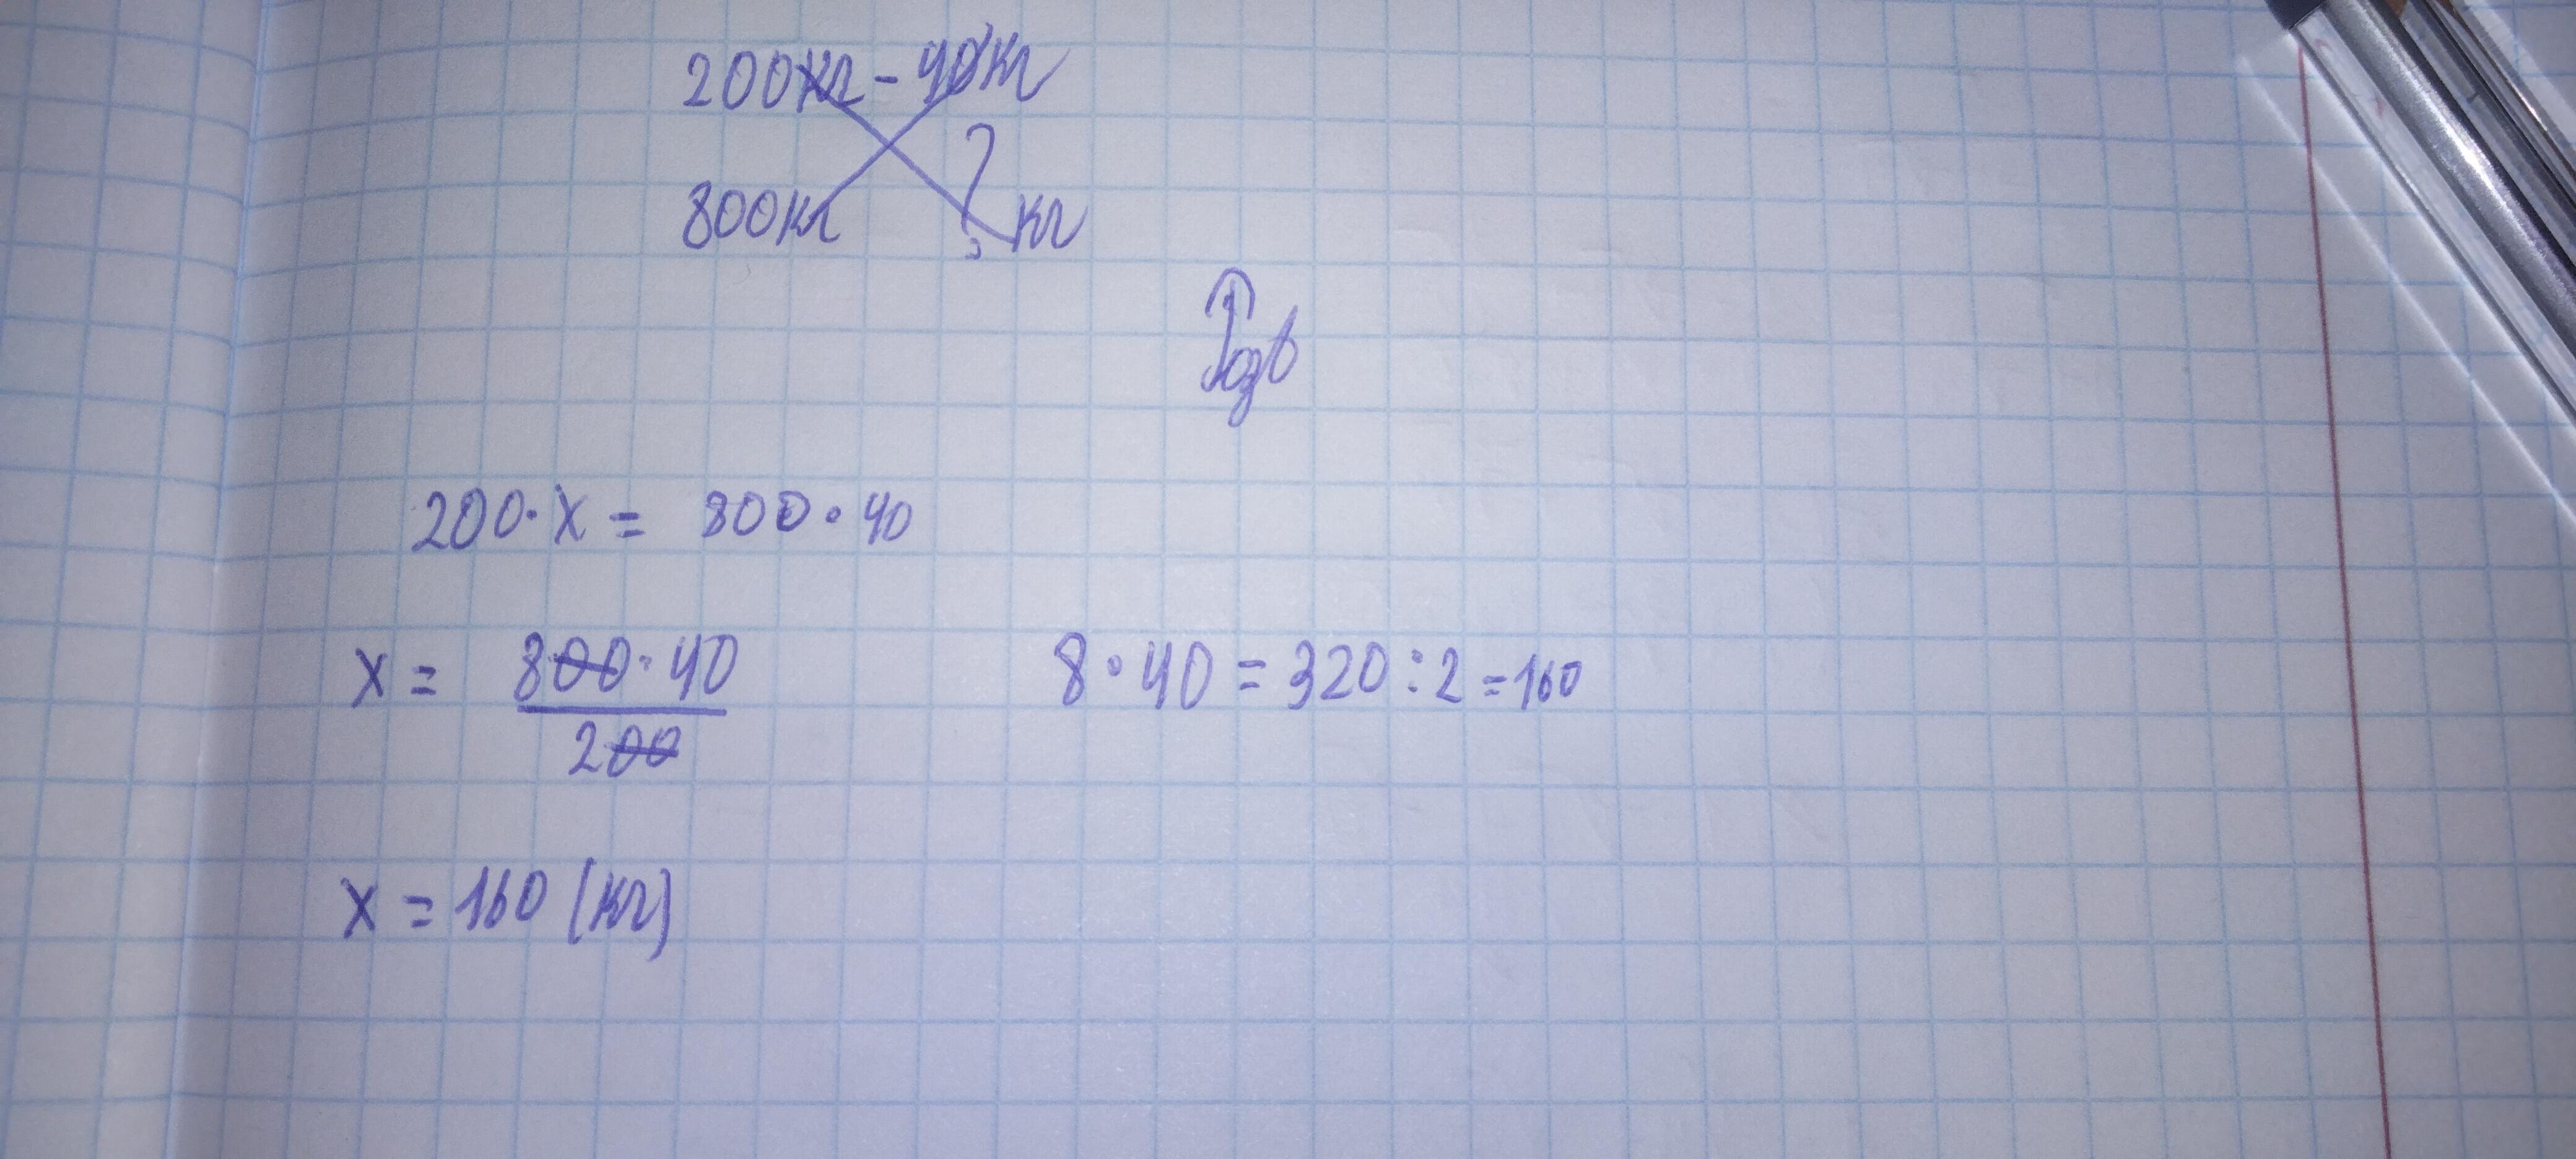 200кг - 40кг
800кг ? кг
200 · x = 800 · 40
x = 800 · 40 / 200
8 · 40 = 320 : 2 = 160
x = 160 (кг)